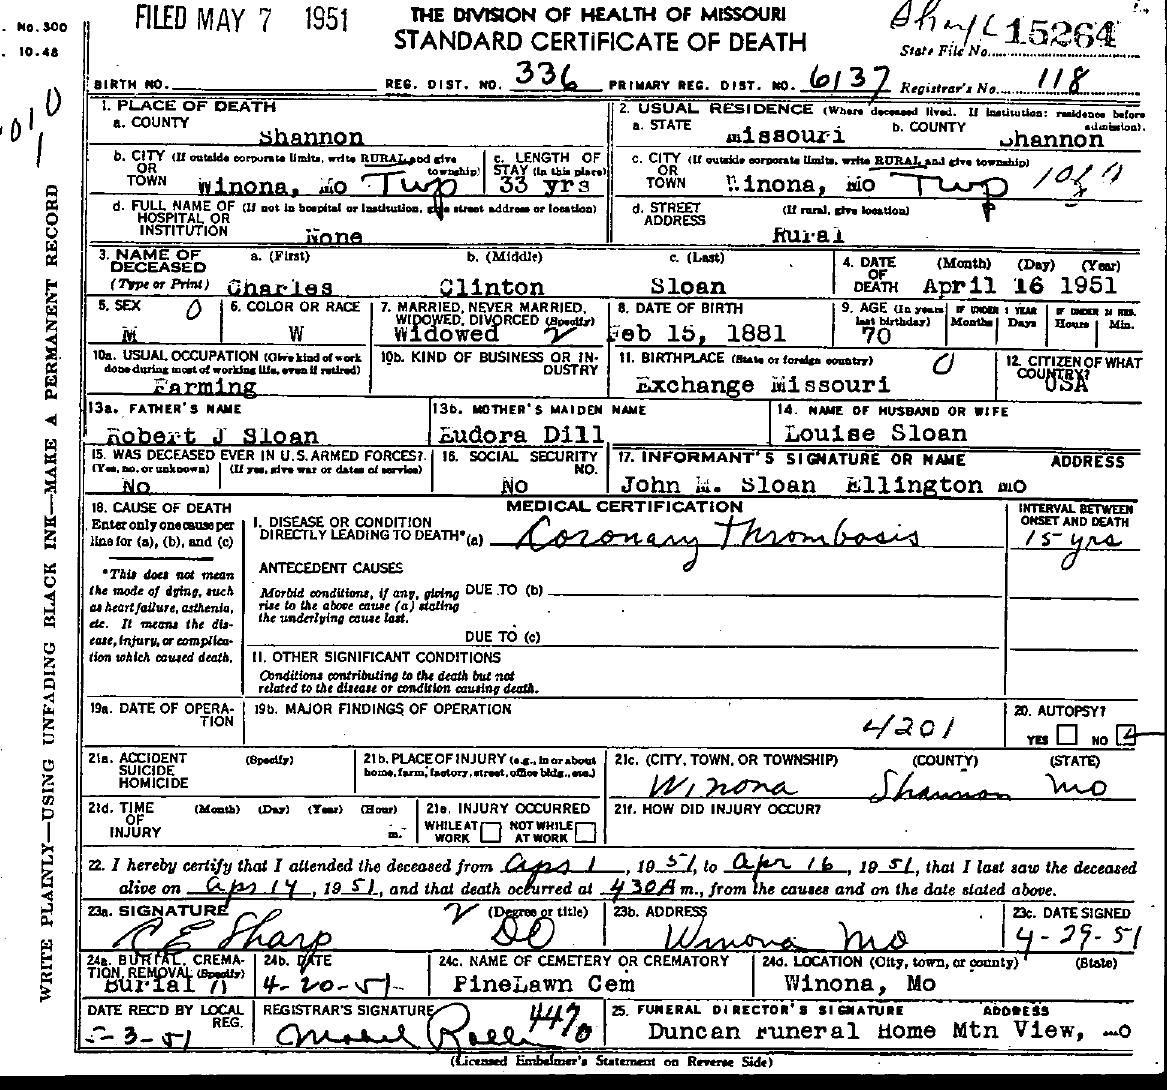 FILED MAY 7 1951
THE DIVISION OF HEALTH OF MISSOURI
STANDARD CERTIFICATE OF DEATH
No. 300
10.48
State File No. 15264
BIRTH NO. REG. DIST. NO. 336 PRIMARY REG. DIST. NO. 6137 Registrar's No. 118
WRITE PLAINLY—USING UNFADING BLACK INK—MAKE A PERMANENT RECORD
1. PLACE OF DEATH
a. COUNTY Shannon
2. USUAL RESIDENCE (Where deceased lived. If institution: residence before admission).
a. STATE Missouri b. COUNTY Shannon
b. CITY (If outside corporate limits, write RURAL and give township)
OR TOWN Winona, Mo Twp
c. LENGTH OF STAY (in this place) 33 yrs
c. CITY (If outside corporate limits, write RURAL and give township)
OR TOWN Winona, Mo Twp
d. FULL NAME OF (If not in hospital or institution, give street address or location)
HOSPITAL OR INSTITUTION None
d. STREET ADDRESS (If rural, give location)
Rural
3. NAME OF DECEASED (Type or Print)
a. (First) b. (Middle) c. (Last)
Charles Clinton Sloan
4. DATE OF DEATH (Month) (Day) (Year)
April 16 1951
5. SEX 0
M
6. COLOR OR RACE
W
7. MARRIED, NEVER MARRIED, WIDOWED, DIVORCED (Specify)
Widowed 2
8. DATE OF BIRTH
Feb 15, 1881
9. AGE (In years last birthday) IF UNDER 1 YEAR Months Days IF UNDER 24 HRS. Hours Min.
70
10a. USUAL OCCUPATION (Give kind of work done during most of working life, even if retired)
Farming
10b. KIND OF BUSINESS OR INDUSTRY
11. BIRTHPLACE (State or foreign country) 0
Exchange Missouri
12. CITIZEN OF WHAT COUNTRY?
USA
13a. FATHER'S NAME
Robert J Sloan
13b. MOTHER'S MAIDEN NAME
Eudora Dill
14. NAME OF HUSBAND OR WIFE
Louise Sloan
15. WAS DECEASED EVER IN U.S. ARMED FORCES?
(Yes, no, or unknown) (If yes, give war or dates of service)
No
16. SOCIAL SECURITY NO.
No
17. INFORMANT'S SIGNATURE OR NAME ADDRESS
John M. Sloan Ellington Mo
18. CAUSE OF DEATH
Enter only one cause per line for (a), (b), and (c)
*This does not mean the mode of dying, such as heart failure, asthenia, etc. It means the disease, injury, or complication which caused death.
MEDICAL CERTIFICATION
I. DISEASE OR CONDITION
DIRECTLY LEADING TO DEATH*(a) Coronary Thrombosis
INTERVAL BETWEEN ONSET AND DEATH
15 yrs
ANTECEDENT CAUSES
Morbid conditions, if any, giving rise to the above cause (a) stating the underlying cause last.
DUE TO (b)
DUE TO (c)
II. OTHER SIGNIFICANT CONDITIONS
Conditions contributing to the death but not related to the disease or condition causing death.
19a. DATE OF OPERATION
19b. MAJOR FINDINGS OF OPERATION
4201
20. AUTOPSY?
YES NO
21a. ACCIDENT SUICIDE HOMICIDE (Specify)
21b. PLACE OF INJURY (e.g., in or about home, farm, factory, street, office bldg., etc.)
21c. (CITY, TOWN, OR TOWNSHIP) (COUNTY) (STATE)
Winona Shannon Mo
21d. TIME OF INJURY (Month) (Day) (Year) (Hour) m.
21e. INJURY OCCURRED
WHILE AT WORK NOT WHILE AT WORK
21f. HOW DID INJURY OCCUR?
22. I hereby certify that I attended the deceased from Apr 1, 1951, to Apr 16, 1951, that I last saw the deceased
alive on Apr 14, 1951, and that death occurred at 430A m., from the causes and on the date stated above.
23a. SIGNATURE 2 (Degree or title)
C E Sharp DO
23b. ADDRESS
Winona Mo
23c. DATE SIGNED
4-29-51
24a. BURIAL, CREMATION, REMOVAL (Specify)
Burial
24b. DATE
4-20-51
24c. NAME OF CEMETERY OR CREMATORY
PineLawn Cem
24d. LOCATION (City, town, or county) (State)
Winona, Mo
DATE REC'D BY LOCAL REG.
3-51
REGISTRAR'S SIGNATURE
Mabel
4470
25. FUNERAL DIRECTOR'S SIGNATURE ADDRESS
Duncan Funeral Home Mtn View, Mo
(Licensed Embalmer's Statement on Reverse Side)